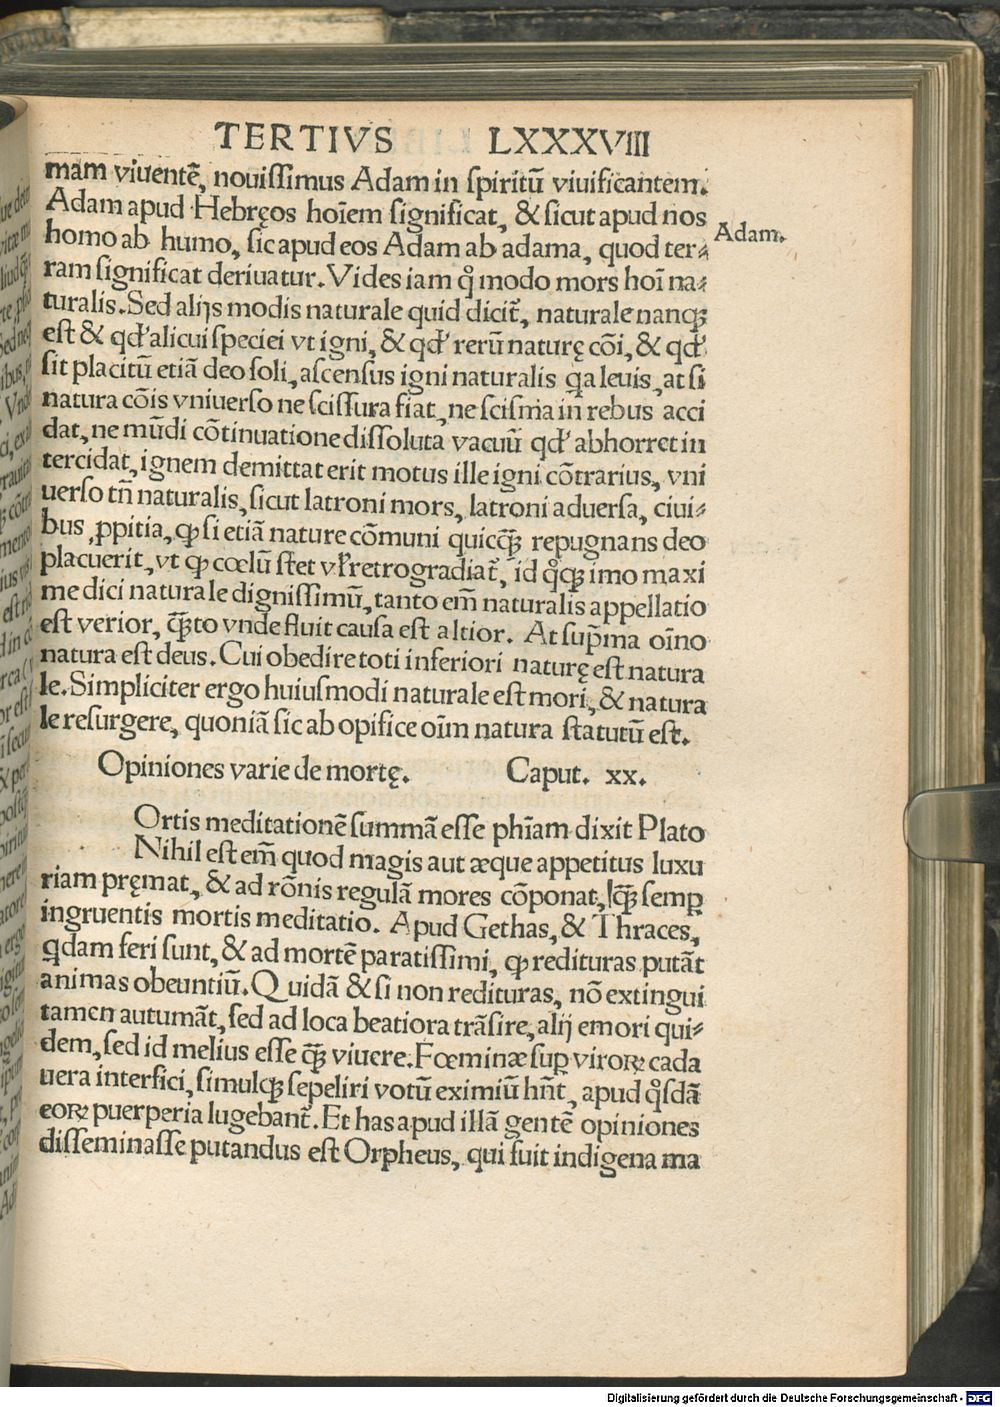 TERTIVS LXXXVIII
mam viuentē, nouissimus Adam in spiritū viuificantem.
Adam apud Hebręos hoīem significat, & sicut apud nos
Adam.
homo ab humo, sic apud eos Adam ab adama, quod ter⸗
ram significat deriuatur. Vides iam qͦ modo mors hoī na⸗
turalis. Sed alijs modis naturale quid dicit̃, naturale nanqꝫ
est & qđ alicui speciei vt igni, & qđ rerū naturę cōi, & qđ
sit placitū etiā deo soli, ascensus igni naturalis qa leuis, at si
natura cōis vniuerso ne scissura fiat, ne scisma in rebus acci
dat, ne mūdi cōtinuatione dissoluta vacuū qđ abhorret in
tercidat, ignem demittat erit motus ille igni cōtrarius, vni
uerso tñ naturalis, sicut latroni mors, latroni aduersa, ciui⸗
bus ꝓpitia, ꝙ si etiā nature cōmuni quicq̃ꝫ repugnans deo
placuerit, vt ꝙ cœlū stet vł retrogradiat̃, id qͦqꝫ imo maxi
me dici naturale dignissimū, tanto em̃ naturalis appellatio
est verior, q̃ꝫto vnde fluit causa est altior. At sup̃ma oīno
natura est deus. Cui obedire toti inferiori naturę est natura
le. Simpliciter ergo huiusmodi naturale est mori, & natura
le resurgere, quoniā sic ab opifice oīm natura statutū est.
Opiniones varie de mortę. Caput. xx.
Ortis meditationē summā esse phīam dixit Plato
Nihil est em̃ quod magis aut æque appetitus luxu
riam pręmat, & ad rōnis regulā mores cōponat, q̃ꝫ semꝑ
ingruentis mortis meditatio. Apud Gethas, & Thraces,
qdam feri sunt, & ad mortē paratissimi, ꝙ redituras putāt
animas obeuntiū. Quidā & si non redituras, nō extingui
tamen autumāt, sed ad loca beatiora trāsire, alij emori qui⸗
dem, sed id melius esse q̃ꝫ viuere. Fœminæ suꝑ viroꝝ cada
uera interfici, simulqꝫ sepeliri votū eximiū hñt, apud qͦsdā
eoꝝ puerperia lugebant̃. Et has apud illā gentē opiniones
disseminasse putandus est Orpheus, qui fuit indigena ma
Digitalisierung gefördert durch die Deutsche Forschungsgemeinschaft - DFG